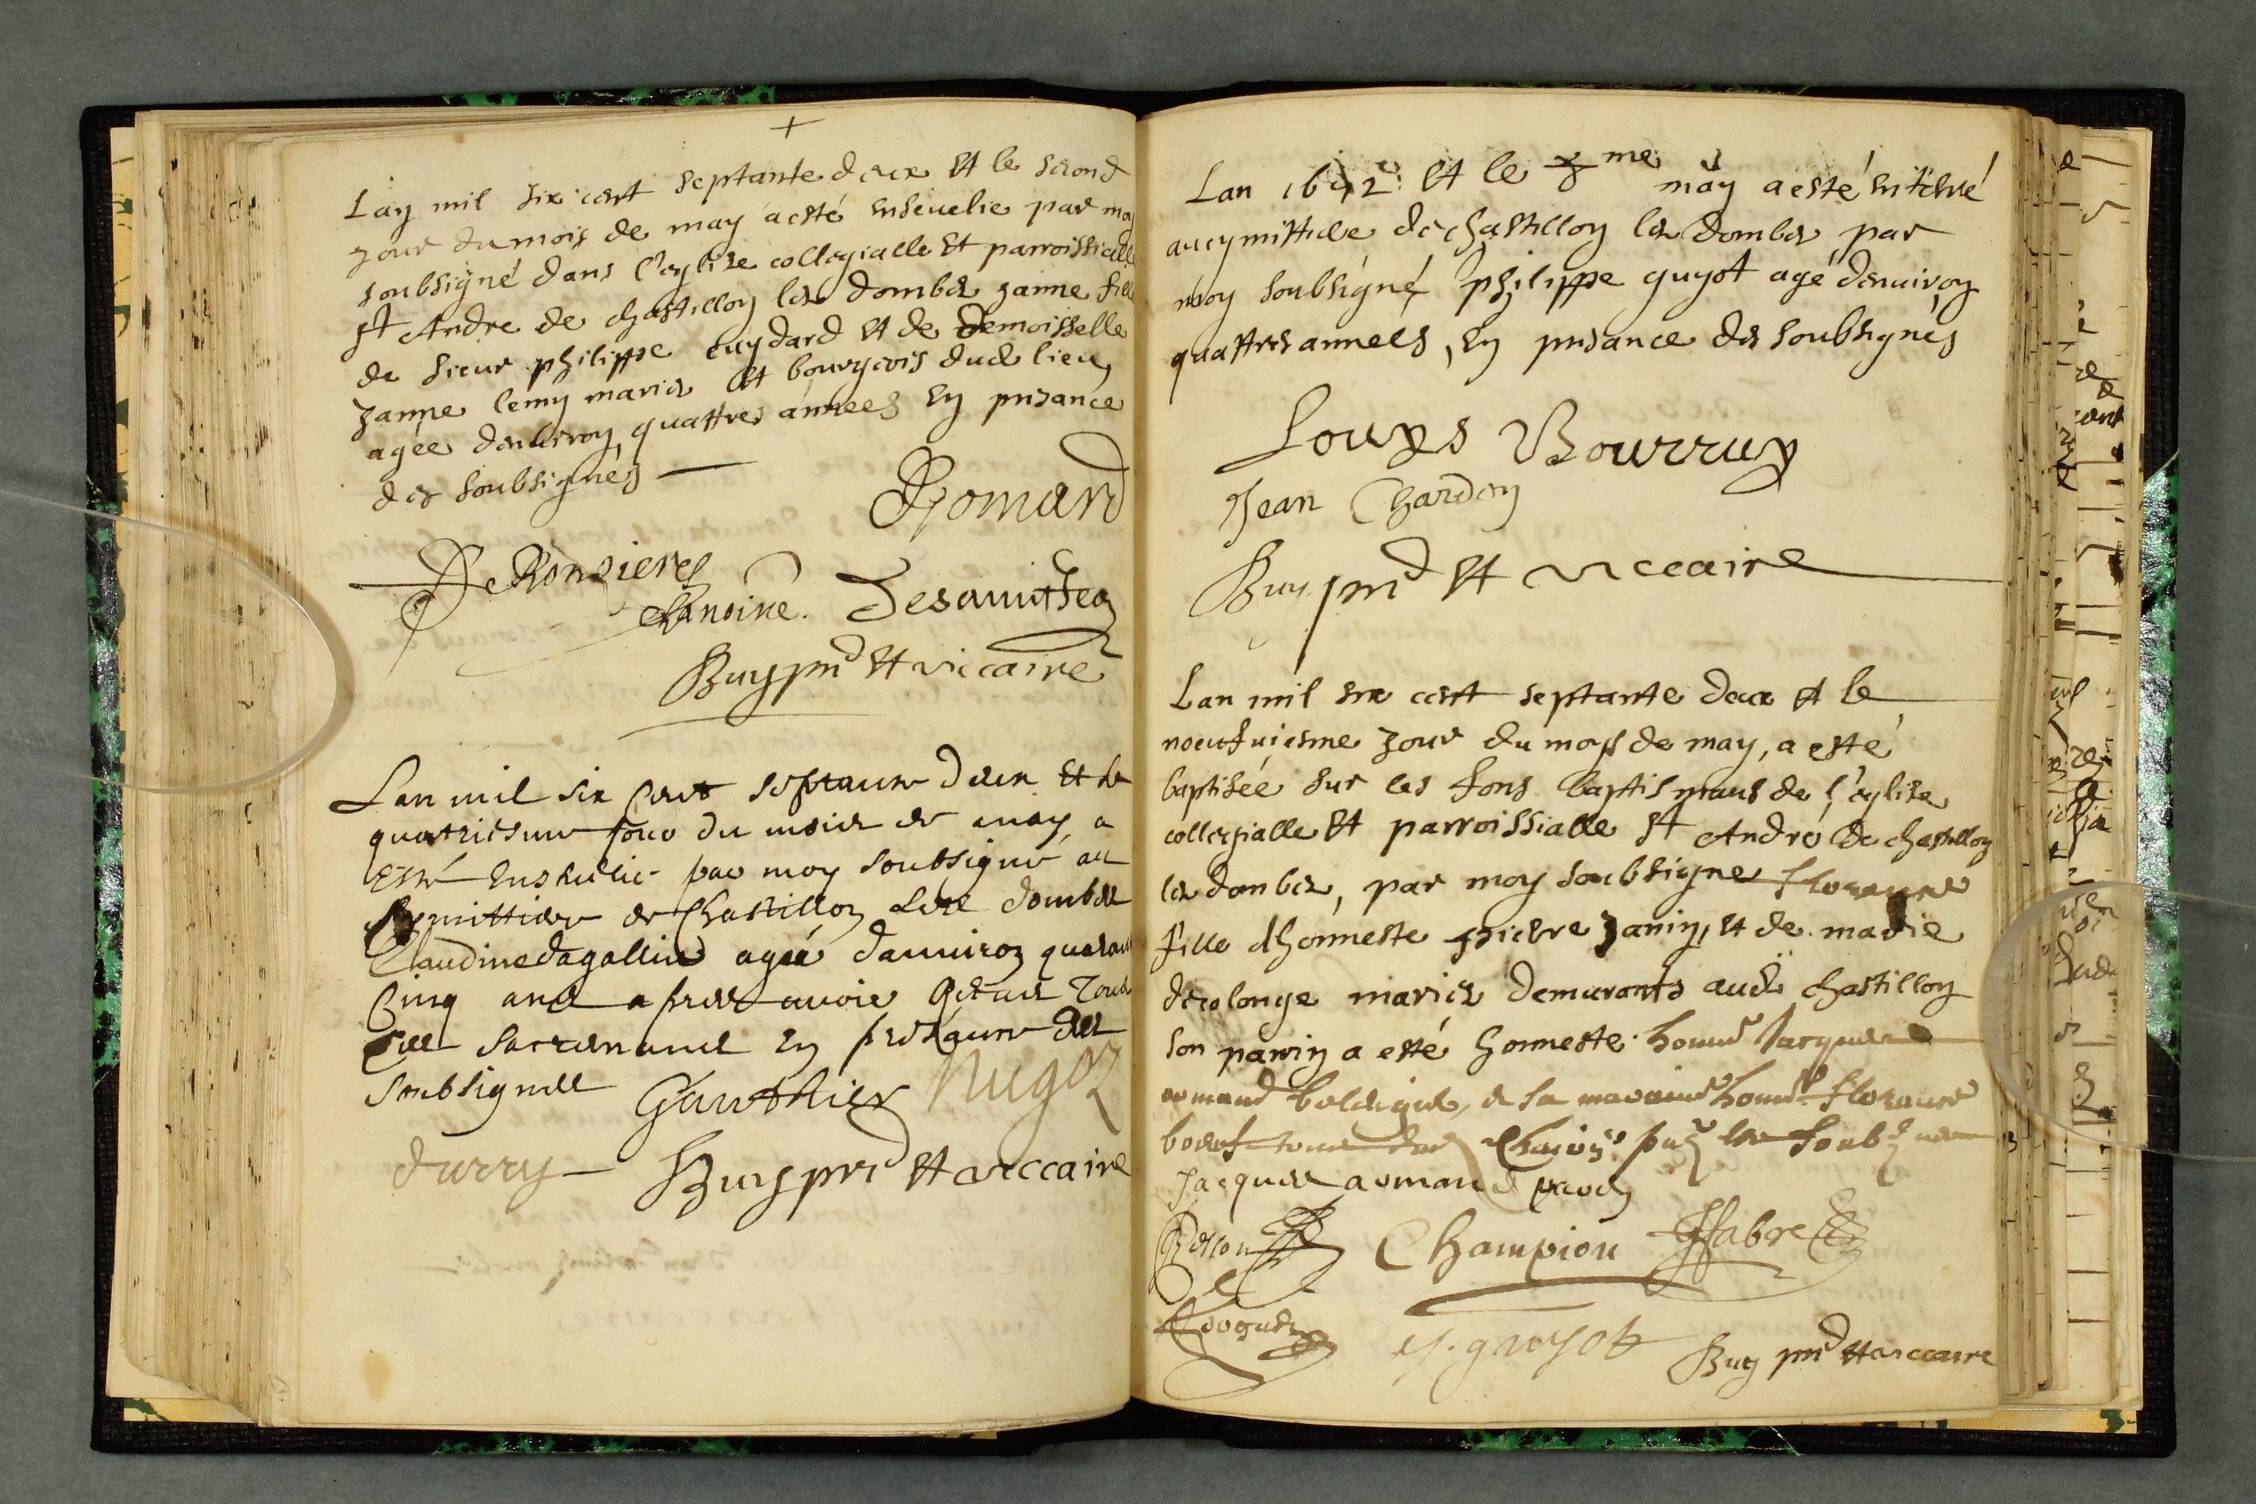 +
Lan mil six cent septante deux et le second
jour du mois de may a esté ensevelie par moy
soubsigné dans l'eglise collegialle et parroissialle
st Andre de chastillon les dombes janne fille
de sieur philippe cuydard et de demoisselle
janne lemy mariez et bourgeois dud lieu,
agée denviron quattres années en pnsance
des soubsignés
Romand
De Ronzieres
chanoine. Desauuthez
Buy pnd et viccaire
Lan mil six cent septante deux et le
quatriesme jour du mois de may, a
esté ensevelie par moy soubsigné au
symittiere de Chastillon les dombes
Claudine dagallier agée danviron quarante
cinq ans apres avoir receus tous
ses sacremens en presence des
soubsignes Gauthier Nugoz
durry Buy pnd et viccaire
Lan 1672 et le 8me may a esté enterré
au cymittiere de chastillon les dombes par
moy soubsigné philippe guyot agé denviron
quattres années, en pnsance des soubsignés
Louys Bourruy
Jean Chardon
Buy pnd et viccaire
Lan mil six cent septante deux et le
noeufviesme jour du moys de may, a esté
baptisée sur les fons baptismaus de l'eglise
collegialle et parroissialle st André de chastillon
les dombes, par moy soubsigne florance
fille dhonneste pierre janin, et de marie
decolonge mariez demurants aud chastillon
son parrin a esté honneste homme Jacques
armand et sa marainne florance
boeuf
Jacques armand
Champion Ffabre
guyot Buy pnd et viccaire